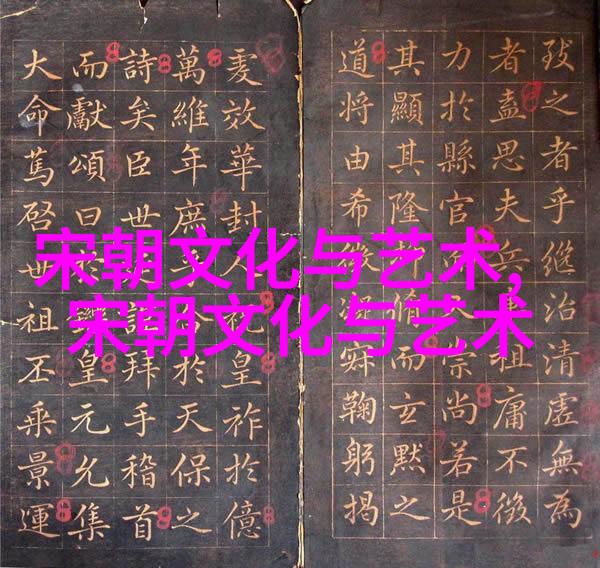 宋朝文化与艺术,
宋朝文化与艺术
之者乎治清虛無為
者思夫兵祖庸不
力於縣官宗尚若是
其顯其隆脩而玄默之
道將由希鞠躬揭
效華封人祝皇祚於億
萬維年庶於天保之
詩矣臣世拜手稽首
而獻頌曰於皇元允集
大命篤啓世祖丕乘景運